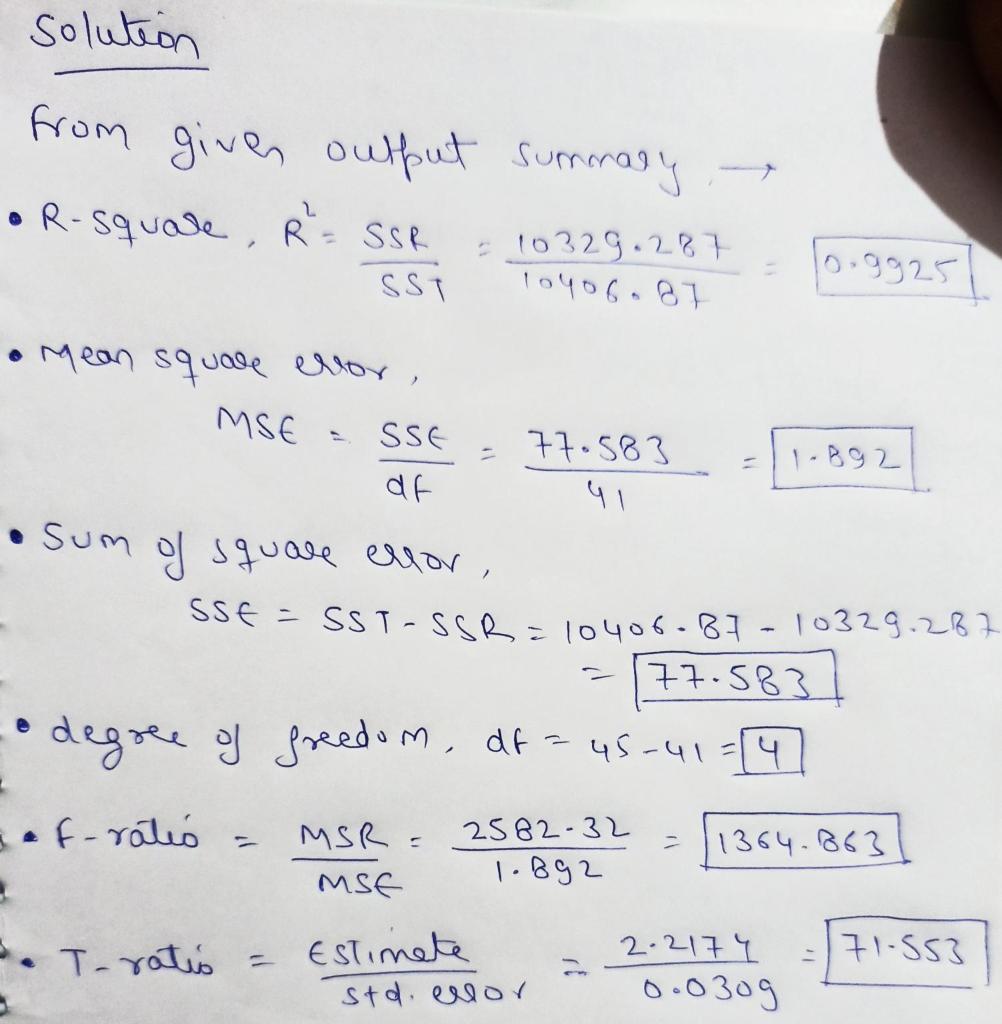 Solution
From given output summary →
• R-square, R² = SSR / SST = 10329.287 / 10406.87 = 0.9925
• Mean square error,
MSE = SSE / df = 77.583 / 41 = 1.892
• Sum of square error,
SSE = SST - SSR = 10406.87 - 10329.287
= 77.583
• degree of freedom, df = 45-41 = 4
• F-ratio = MSR / MSE = 2582.32 / 1.892 = 1364.863
• T-ratio = Estimate / std. error = 2.2174 / 0.0309 = 71.553